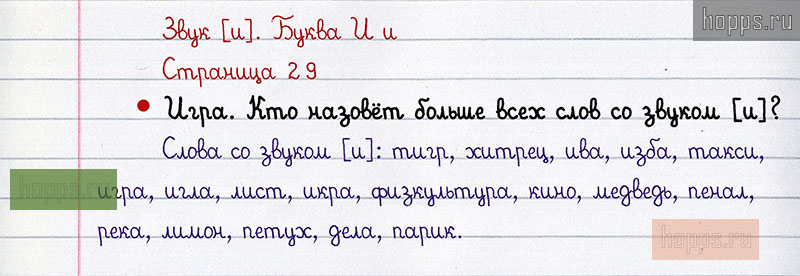 hopps.ru
Звук [и]. Буква И и
Страница 29
• Игра. Кто назовёт больше всех слов со звуком [и]?
Слова со звуком [и]: тигр, хитрец, ива, изба, такси,
hopps.ru
игра, игла, лист, икра, физкультура, кино, медведь, пенал,
река, лимон, петух, дела, парик.
hopps.ru